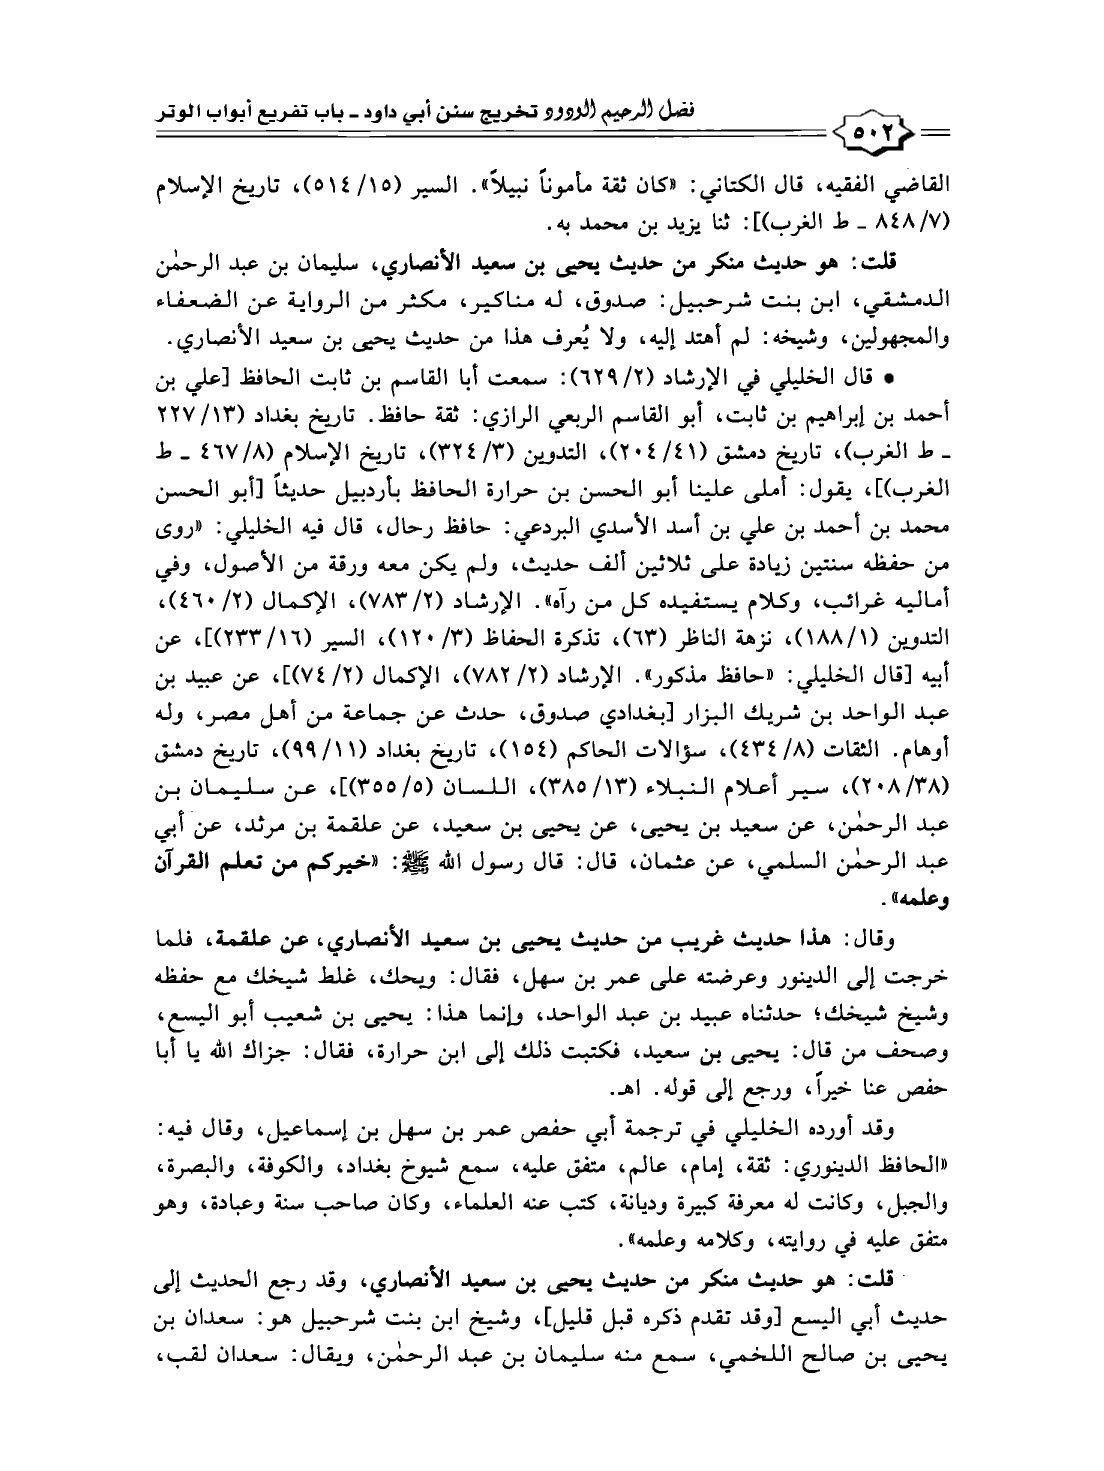 فضل الرحيم الودود تخريج سنن أبي داود ـ باب تفريع أبواب الوتر
٥٠٢
القاضي الفقيه، قال الكتاني: «كان ثقة مأموناً نبيلاً». السير (١٥/ ٥١٤)، تاريخ الإسلام
(٧/ ٨٤٨ ـ ط الغرب)]: ثنا يزيد بن محمد به.
قلت: هو حديث منكر من حديث يحيى بن سعيد الأنصاري، سليمان بن عبد الرحمٰن
الدمشقي، ابن بنت شرحبيل: صدوق، له مناكير، مكثر من الرواية عن الضعفاء
والمجهولين، وشيخه: لم أهتد إليه، ولا يُعرف هذا من حديث يحيى بن سعيد الأنصاري.
• قال الخليلي في الإرشاد (٢/ ٦٢٩): سمعت أبا القاسم بن ثابت الحافظ [علي بن
أحمد بن إبراهيم بن ثابت، أبو القاسم الربعي الرازي: ثقة حافظ. تاريخ بغداد (١٣/ ٢٢٧
ـ ط الغرب)، تاريخ دمشق (٤١/ ٢٠٤)، التدوين (٣/ ٣٢٤)، تاريخ الإسلام (٨/ ٤٦٧ ـ ط
الغرب)]، يقول: أملى علينا أبو الحسن بن حرارة الحافظ بأردبيل حديثاً [أبو الحسن
محمد بن أحمد بن علي بن أسد الأسدي البردعي: حافظ رحال، قال فيه الخليلي: «روى
من حفظه سنتين زيادة على ثلاثين ألف حديث، ولم يكن معه ورقة من الأصول، وفي
أماليه غرائب، وكلام يستفيده كل من رآه». الإرشاد (٢/ ٧٨٣)، الإكمال (٢/ ٤٦٠)،
التدوين (١/ ١٨٨)، نزهة الناظر (٦٣)، تذكرة الحفاظ (٣/ ١٢٠)، السير (١٦/ ٢٣٣)]، عن
أبيه [قال الخليلي: «حافظ مذكور». الإرشاد (٢/ ٧٨٢)، الإكمال (٢/ ٧٤)]، عن عبيد بن
عبد الواحد بن شريك البزار [بغدادي صدوق، حدث عن جماعة من أهل مصر، وله
أوهام. الثقات (٨/ ٤٣٤)، سؤالات الحاكم (١٥٤)، تاريخ بغداد (١١/ ٩٩)، تاريخ دمشق
(٣٨/ ٢٠٨)، سير أعلام النبلاء (١٣/ ٣٨٥)، اللسان (٥/ ٣٥٥)]، عن سليمان بن
عبد الرحمٰن، عن سعيد بن يحيى، عن يحيى بن سعيد، عن علقمة بن مرثد، عن أبي
عبد الرحمٰن السلمي، عن عثمان، قال: قال رسول الله ﷺ: «خيركم من تعلم القرآن
وعلمه».
وقال: هذا حديث غريب من حديث يحيى بن سعيد الأنصاري، عن علقمة، فلما
خرجت إلى الدينور وعرضته على عمر بن سهل، فقال: ويحك، غلط شيخك مع حفظه
وشيخ شيخك؛ حدثناه عبيد بن عبد الواحد، وإنما هذا: يحيى بن شعيب أبو اليسع،
وصحف من قال: يحيى بن سعيد، فكتبت ذلك إلى ابن حرارة، فقال: جزاك الله يا أبا
حفص عنا خيراً، ورجع إلى قوله. اهـ.
وقد أورده الخليلي في ترجمة أبي حفص عمر بن سهل بن إسماعيل، وقال فيه:
«الحافظ الدينوري: ثقة، إمام، عالم، متفق عليه، سمع شيوخ بغداد، والكوفة، والبصرة،
والجبل، وكانت له معرفة كبيرة وديانة، كتب عنه العلماء، وكان صاحب سنة وعبادة، وهو
متفق عليه في روايته، وكلامه وعلمه».
قلت: هو حديث منكر من حديث يحيى بن سعيد الأنصاري، وقد رجع الحديث إلى
حديث أبي اليسع [وقد تقدم ذكره قبل قليل]، وشيخ ابن بنت شرحبيل هو: سعدان بن
يحيى بن صالح اللخمي، سمع منه سليمان بن عبد الرحمٰن، ويقال: سعدان لقب،